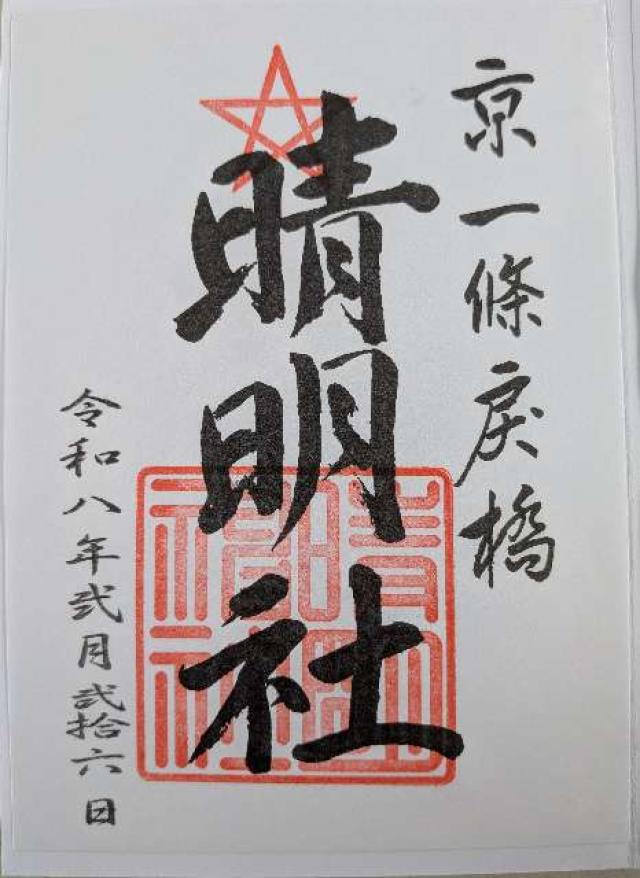 京一條戻橋
晴明社
令和八年弐月弐拾六日